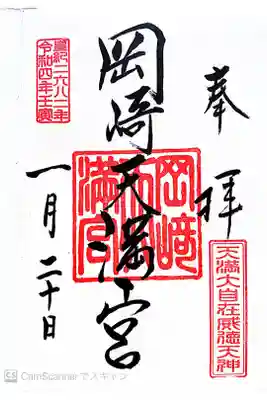 奉拝
天満大自在威徳天神
岡崎天満宮
岡﨑天満宮
皇紀二六八二年
令和四年壬寅
一月二十日
CS CamScanner でスキャン